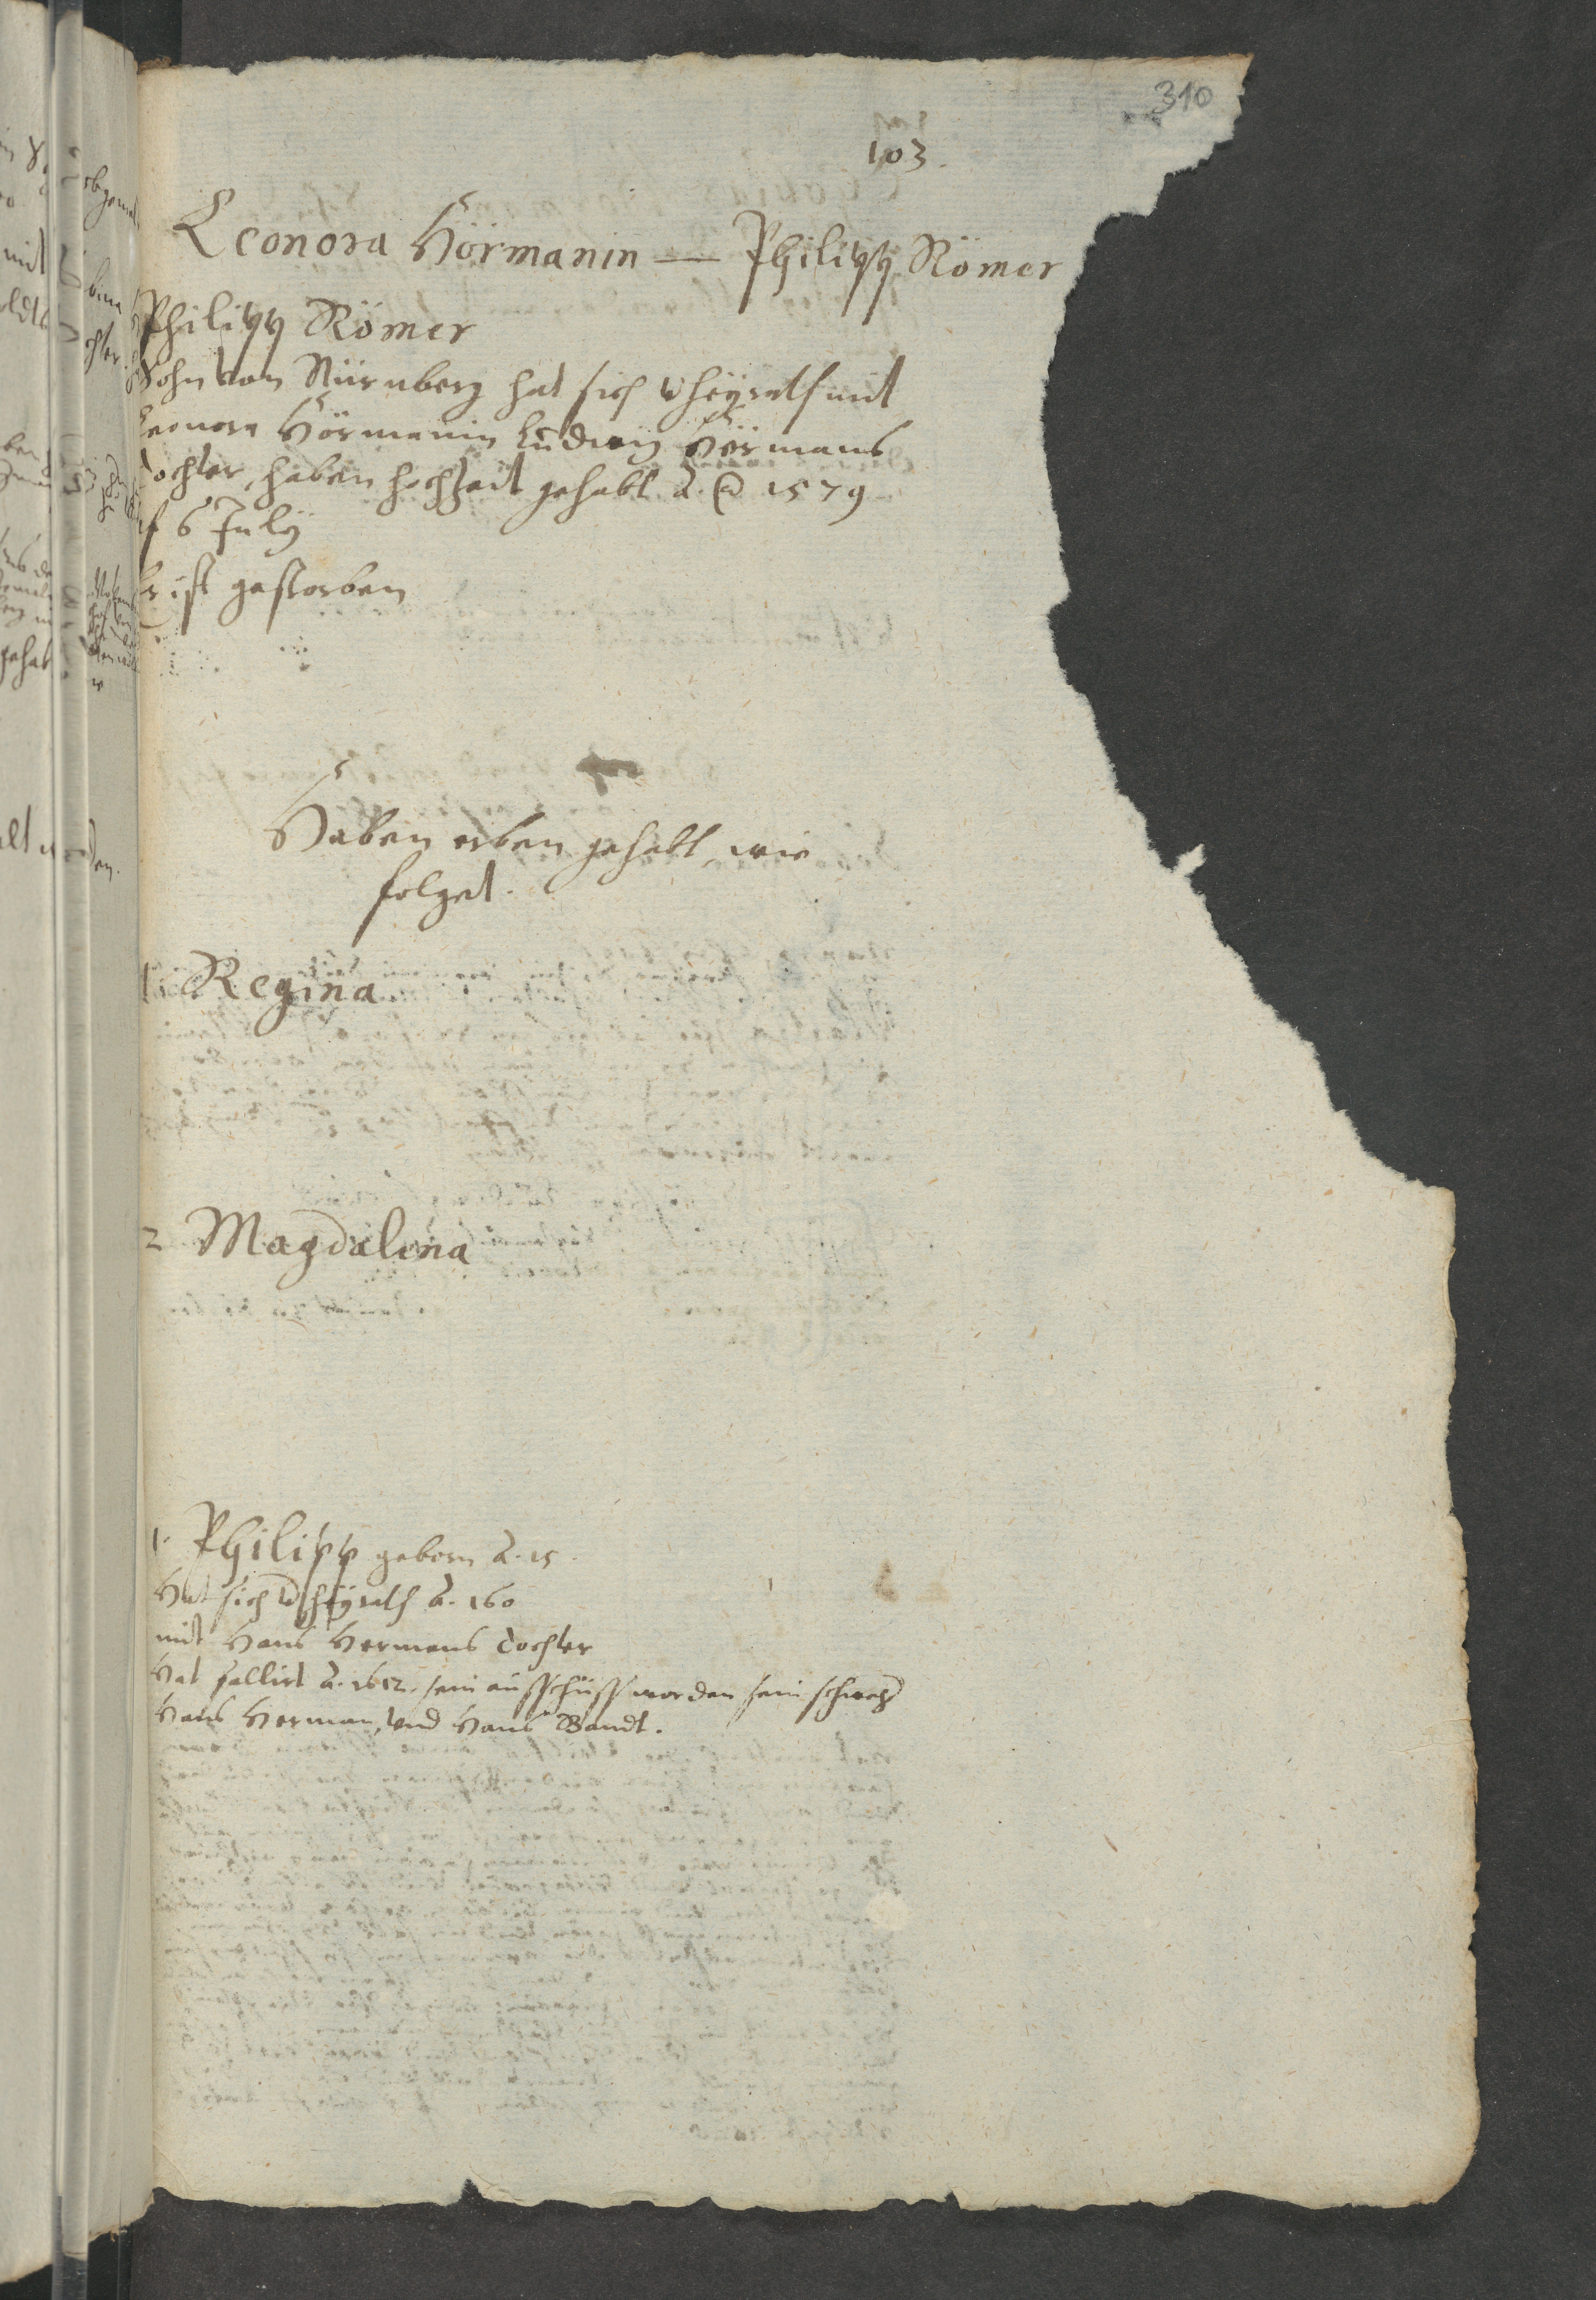 310
103.
Leonora Hörmanin — Philipp Römer
Philipp Römer
Sohn von Nürnberg hat sich vheÿrath mit
Leonora Hörmanin Ludwig Hörmans
tochter, haben hochzeit gehabt A. @ 1579
6 Julÿ
Er ist gestorben
Haben erben gehabt, wie
folget.
1. Regina
2 Magdalena
1. Philipp geborn A. 15
Hat sich vheÿrath A. 160
mit Hans Hermans tochter
Hat fallirt A. 1612. sein außschuss worden sein schweher
Hans Herman, vnd Hans Bandt.